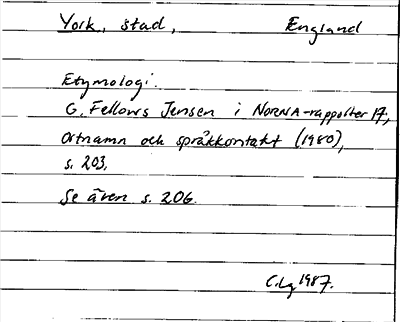 York, stad, England
Etymologi.
G. Fellows Jensen i NORNA-rapporter 17,
Ortnamn och språkkontakt (1980),
s. 203.
Se även s. 206.
C.Lg 1987.